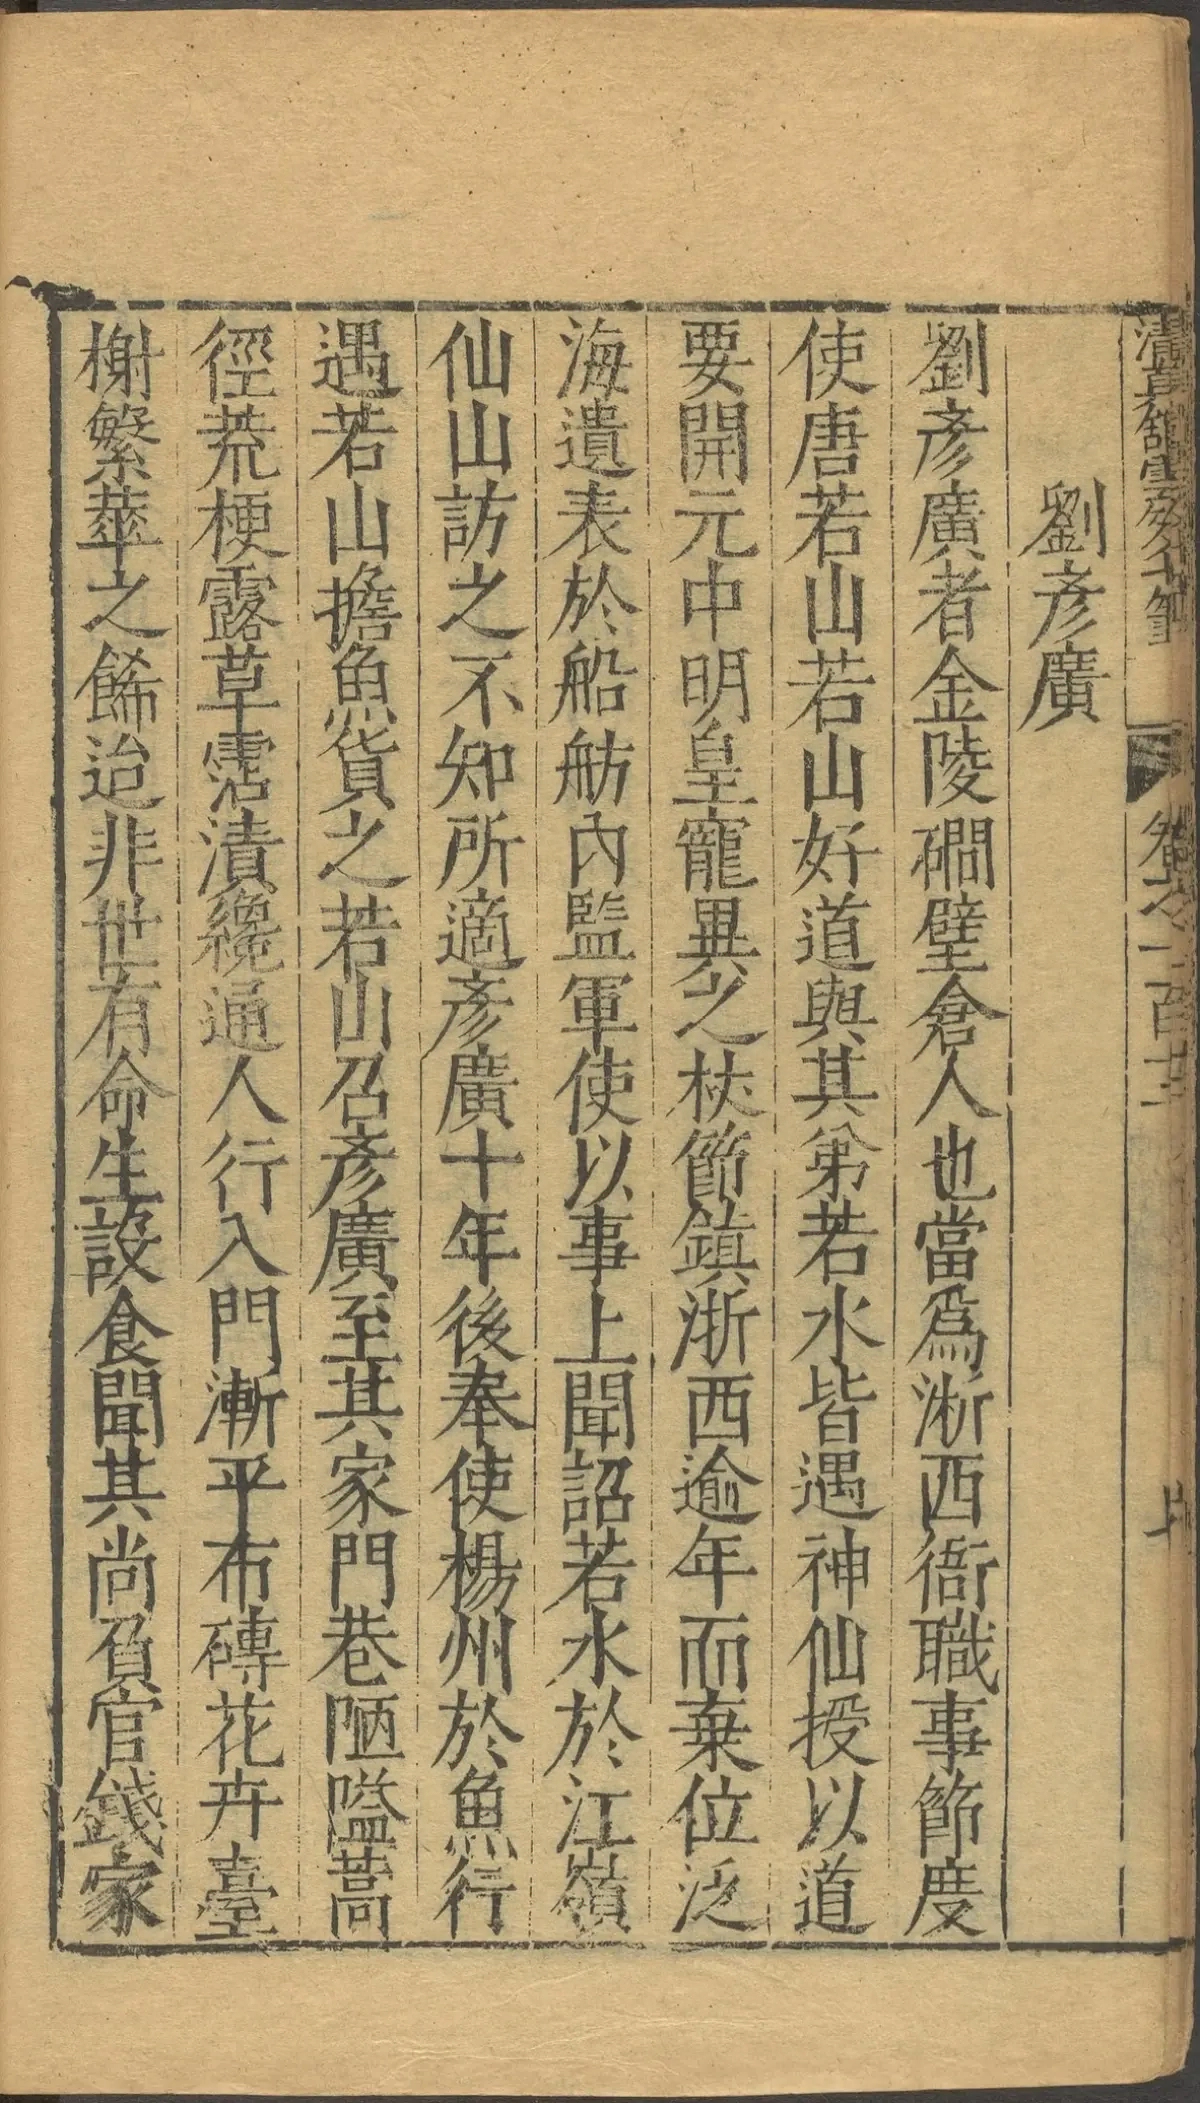 劉彥廣
劉彥廣者金陵磵壁倉人也當爲淅西衙職事節度
使唐若山若山好道與其弟若水皆遇神仙授以道
要開元中明皇寵異之杖節鎮浙西逾年而棄位泛
海遺表於船舫內監軍使以事上聞詔若水於江嶺
仙山訪之不知所適彥廣十年後奉使楊州於魚行
遇若山擔魚貨之若山召彥廣至其家門巷陋隘蒿
徑荒梗露草霑漬纔通人行入門漸平布磚花卉臺
榭繁華之餙迨非世有命生設食聞其尚負官錢家